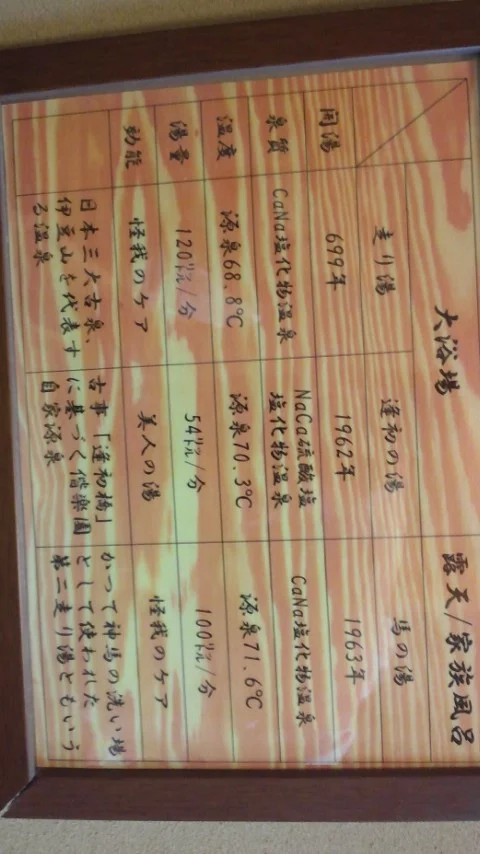 大浴場 露天/家族風呂
走り湯 逢初の湯 馬の湯
開湯 699年 1962年 1963年
泉質 CaNa塩化物温泉 NaCa硫酸塩
塩化物温泉 CaNa塩化物温泉
温度 源泉68.8℃ 源泉70.3℃ 源泉71.6℃
湯量 120㍑/分 54㍑/分 100㍑/分
効能 怪我のケア 美人の湯 怪我のケア
日本三大古泉、
伊豆山を代表す
る温泉
古事「逢初橋」
に基づく偕楽園
自家源泉
かつて神馬の洗い場
として使われた
第二走り湯ともいう